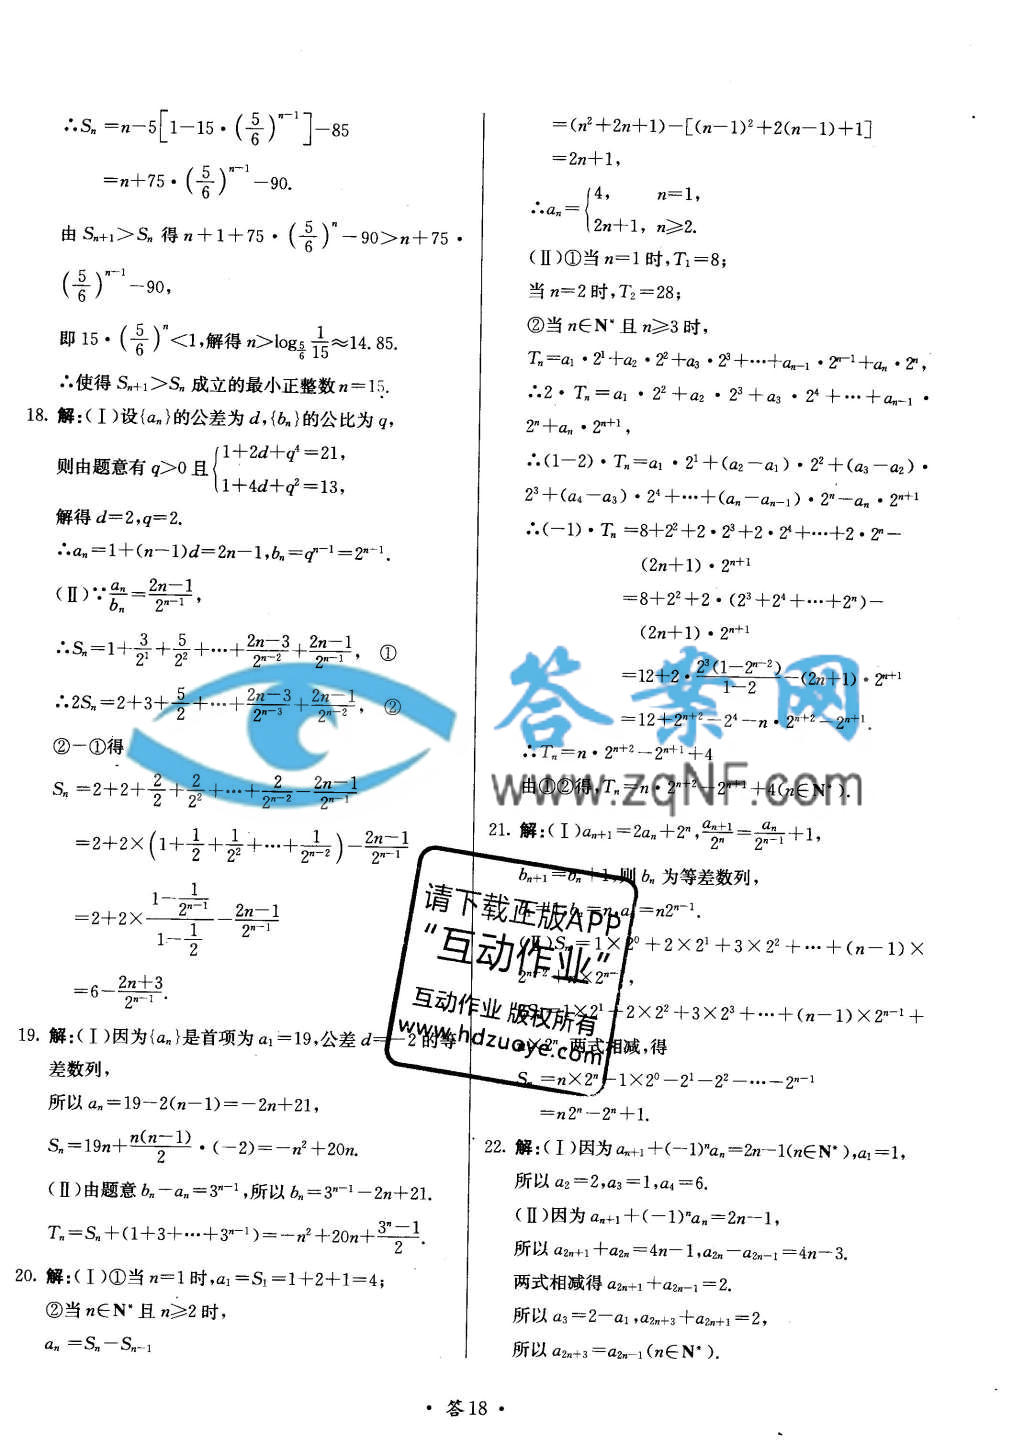 ∴Sₙ=n-5[1-15·(5/6)ⁿ⁻¹]-85
=n+75·(5/6)ⁿ⁻¹-90.
由 Sₙ₊₁>Sₙ 得 n+1+75·(5/6)ⁿ-90>n+75·
(5/6)ⁿ⁻¹-90,
即 15·(5/6)ⁿ<1,解得 n>log_{5/6} 1/15≈14.85.
∴使得 Sₙ₊₁>Sₙ 成立的最小正整数 n=15.
18. 解:(Ⅰ)设{aₙ}的公差为 d,{bₙ}的公比为 q,
则由题意有 q>0 且{1+2d+q⁴=21,
1+4d+q²=13,
解得 d=2,q=2.
∴aₙ=1+(n-1)d=2n-1,bₙ=qⁿ⁻¹=2ⁿ⁻¹.
(Ⅱ)∵aₙ/bₙ=(2n-1)/2ⁿ⁻¹,
∴Sₙ=1+3/2¹+5/2²+…+(2n-3)/2ⁿ⁻²+(2n-1)/2ⁿ⁻¹, ①
∴2Sₙ=2+3+5/2+…+(2n-3)/2ⁿ⁻³+(2n-1)/2ⁿ⁻², ②
②-①得
Sₙ=2+2+2/2+2/2²+…+2/2ⁿ⁻²-(2n-1)/2ⁿ⁻¹
=2+2×(1+1/2+1/2²+…+1/2ⁿ⁻²)-(2n-1)/2ⁿ⁻¹
=2+2×(1-1/2ⁿ⁻¹)/(1-1/2)-(2n-1)/2ⁿ⁻¹
=6-(2n+3)/2ⁿ⁻¹.
19. 解:(Ⅰ)因为{aₙ}是首项为 a₁=19,公差 d=-2 的等
差数列,
所以 aₙ=19-2(n-1)=-2n+21,
Sₙ=19n+n(n-1)/2·(-2)=-n²+20n.
(Ⅱ)由题意 bₙ-aₙ=3ⁿ⁻¹,所以 bₙ=3ⁿ⁻¹-2n+21.
Tₙ=Sₙ+(1+3+…+3ⁿ⁻¹)=-n²+20n+(3ⁿ-1)/2.
20. 解:(Ⅰ)①当 n=1 时,a₁=S₁=1+2+1=4;
②当 n∈N* 且 n≥2 时,
aₙ=Sₙ-Sₙ₋₁
=(n²+2n+1)-[(n-1)²+2(n-1)+1]
=2n+1,
∴aₙ={4, n=1,
2n+1, n≥2.
(Ⅱ)①当 n=1 时,T₁=8;
当 n=2 时,T₂=28;
②当 n∈N* 且 n≥3 时,
Tₙ=a₁·2¹+a₂·2²+a₃·2³+…+aₙ₋₁·2ⁿ⁻¹+aₙ·2ⁿ,
∴2·Tₙ=a₁·2²+a₂·2³+a₃·2⁴+…+aₙ₋₁·
2ⁿ+aₙ·2ⁿ⁺¹,
∴(1-2)·Tₙ=a₁·2¹+(a₂-a₁)·2²+(a₃-a₂)·
2³+(a₄-a₃)·2⁴+…+(aₙ-aₙ₋₁)·2ⁿ-aₙ·2ⁿ⁺¹
∴(-1)·Tₙ=8+2²+2·2³+2·2⁴+…+2·2ⁿ-
(2n+1)·2ⁿ⁺¹
=8+2²+2·(2³+2⁴+…+2ⁿ)-
(2n+1)·2ⁿ⁺¹
=12+2·2³(1-2ⁿ⁻²)/(1-2)-(2n+1)·2ⁿ⁺¹
=12+2ⁿ⁺²-2⁴-n·2ⁿ⁺²-2ⁿ⁺¹.
∴Tₙ=n·2ⁿ⁺²-2ⁿ⁺¹+4
由①②得,Tₙ=n·2ⁿ⁺²-2ⁿ⁺¹+4(n∈N*).
21. 解:(Ⅰ)aₙ₊₁=2aₙ+2ⁿ,aₙ₊₁/2ⁿ=aₙ/2ⁿ⁻¹+1,
bₙ₊₁=bₙ+1,则 bₙ 为等差数列,
aₙ=n2ⁿ⁻¹.
(Ⅱ)Sₙ=1×2⁰+2×2¹+3×2²+…+(n-1)×
2ⁿ⁻²+n×2ⁿ⁻¹,
1×2¹+2×2²+3×2³+…+(n-1)×2ⁿ⁻¹+
n×2ⁿ,两式相减,得
Sₙ=n×2ⁿ-1×2⁰-2¹-2²-…-2ⁿ⁻¹
=n2ⁿ-2ⁿ+1.
22. 解:(Ⅰ)因为 aₙ₊₁+(-1)ⁿaₙ=2n-1(n∈N*),a₁=1,
所以 a₂=2,a₃=1,a₄=6.
(Ⅱ)因为 aₙ₊₁+(-1)ⁿaₙ=2n-1,
所以 a₂ₙ₊₁+a₂ₙ=4n-1,a₂ₙ-a₂ₙ₋₁=4n-3.
两式相减得 a₂ₙ₊₁+a₂ₙ₋₁=2.
所以 a₃=2-a₁,a₂ₙ₊₃+a₂ₙ₊₁=2,
所以 a₂ₙ₊₃=a₂ₙ₋₁(n∈N*).
答案网
www.zqNF.com
请下载正版APP
"互动作业"
互动作业 版权所有
www.hdzuoye.com
·答18·